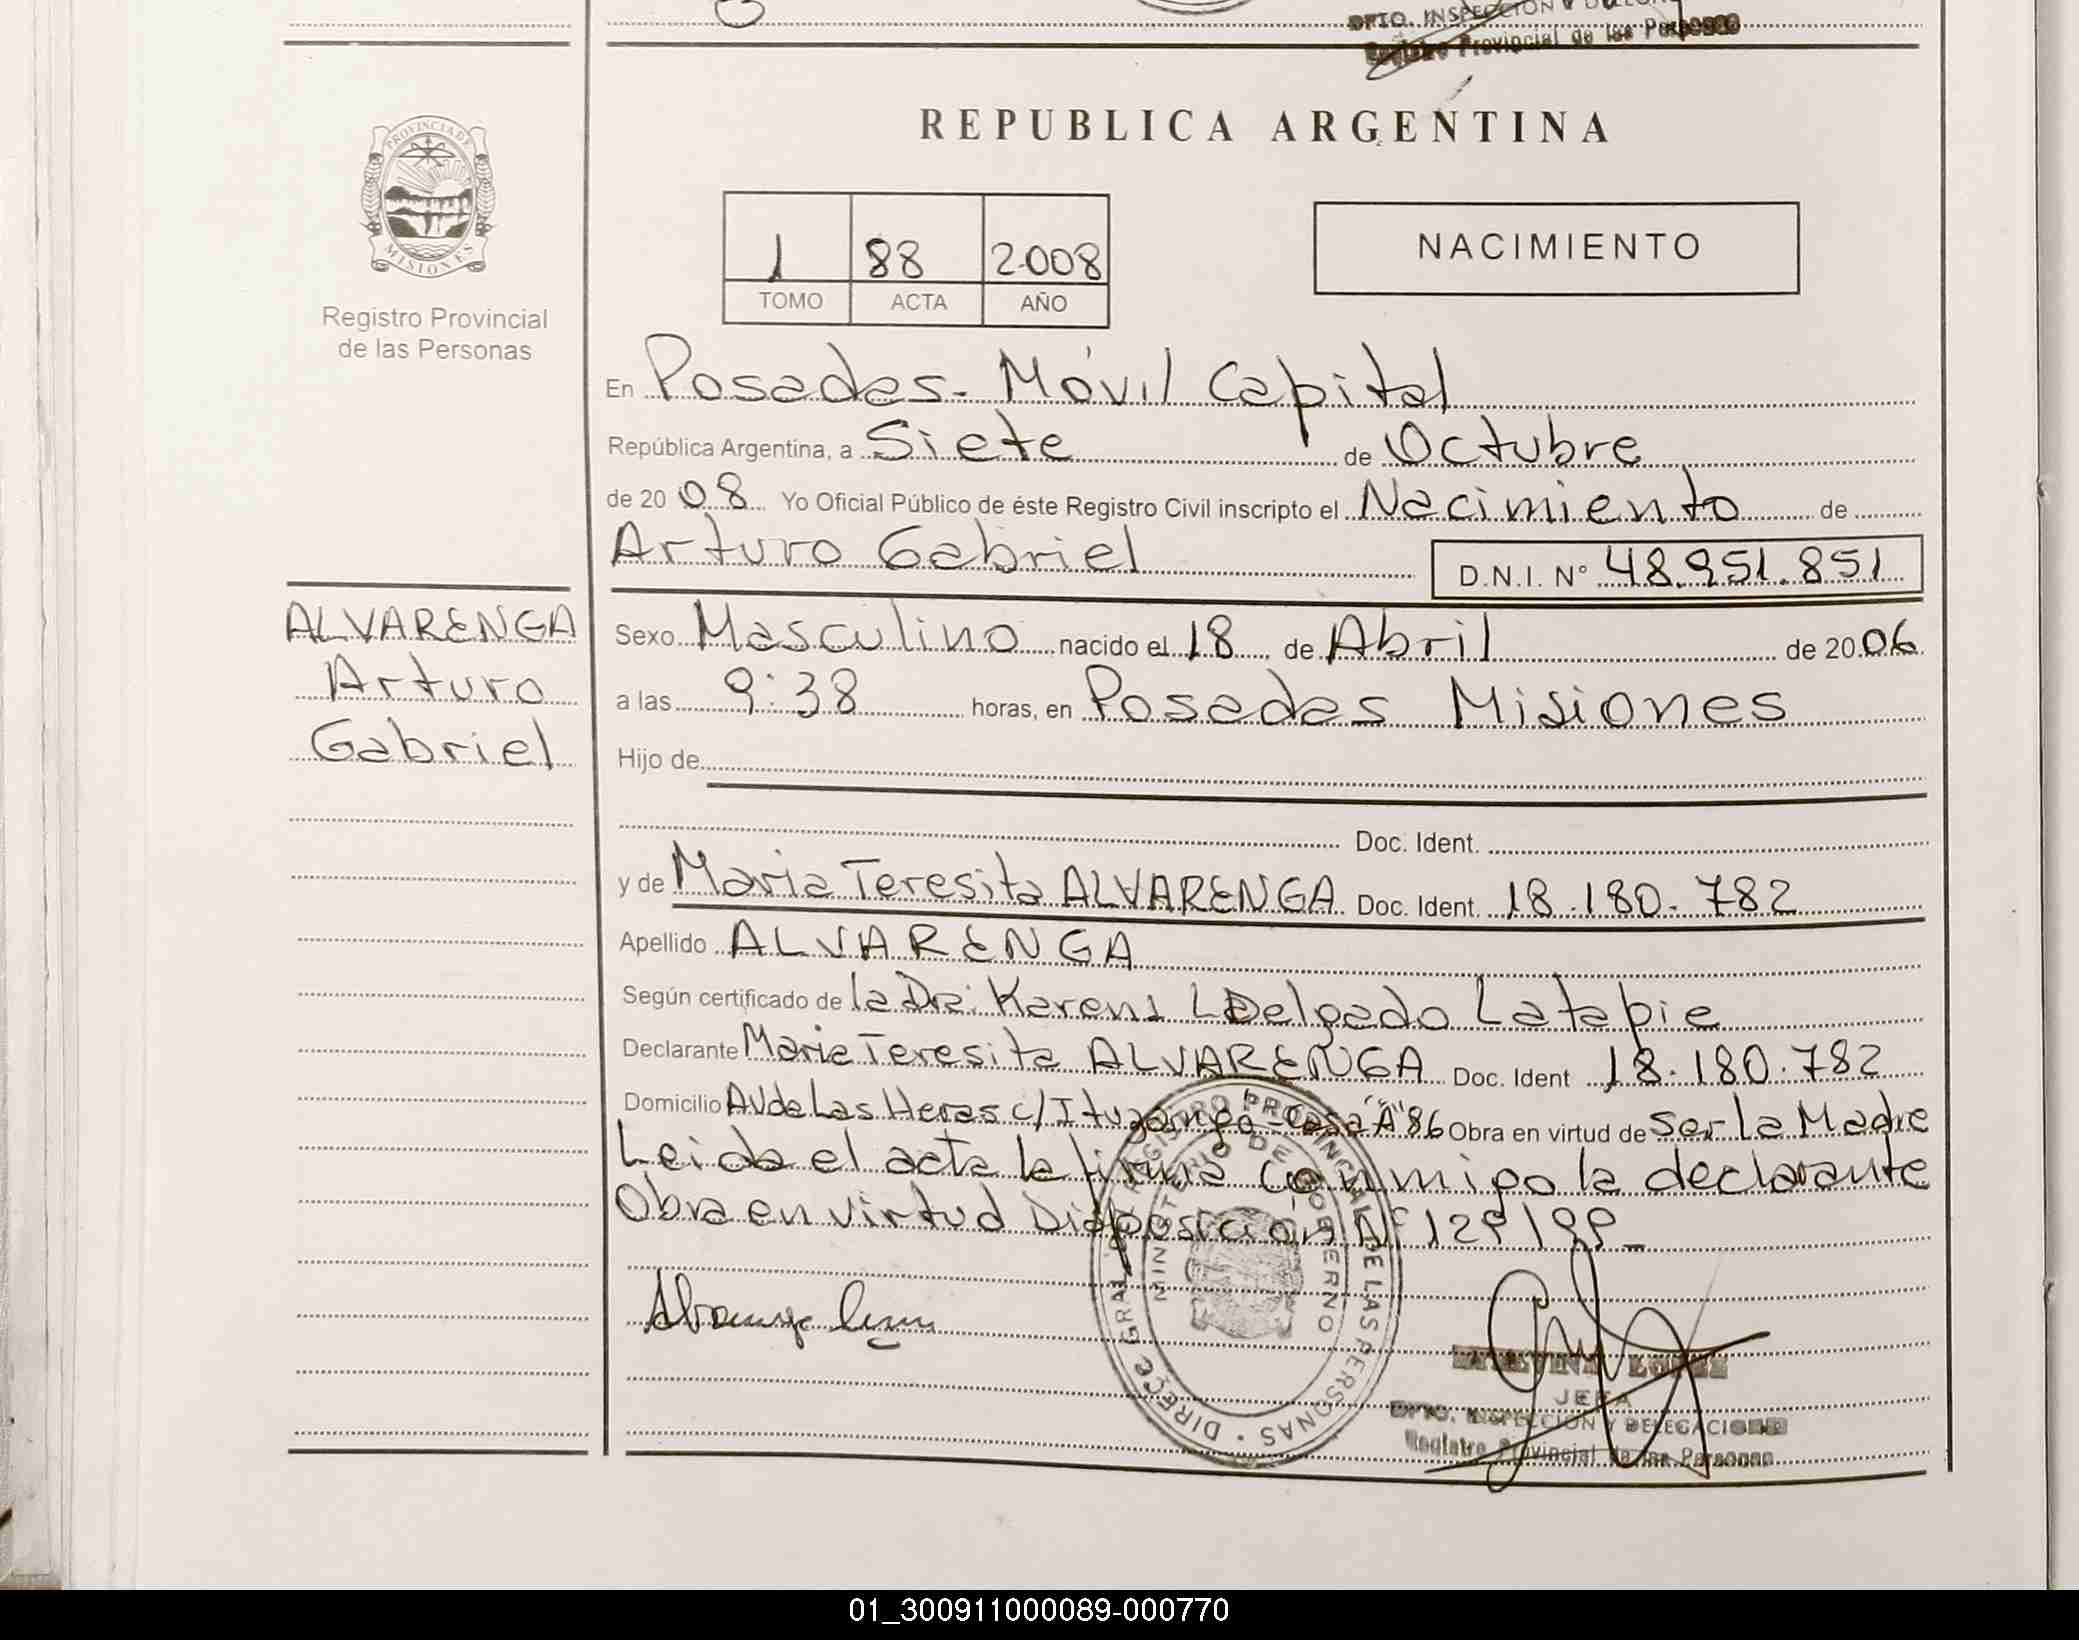 DPTO. INSPECCION Y DELEGACIONES
Registro Provincial de las Personas
REPUBLICA ARGENTINA
PROVINCIA DE
MISIONES
Registro Provincial
de las Personas
1 88 2008
TOMO ACTA AÑO
NACIMIENTO
En Posadas - Móvil Capital
República Argentina, a Siete de Octubre
de 20 08 Yo Oficial Público de éste Registro Civil inscripto el Nacimiento de
Arturo Gabriel D.N.I. N° 48.951.851
ALVARENGA
Arturo
Gabriel
Sexo Masculino nacido el 18 de Abril de 20 06
a las 9:38 horas, en Posadas Misiones
Hijo de
Doc. Ident.
y de Maria Teresita ALVARENGA Doc. Ident. 18.180.782
Apellido ALVARENGA
Según certificado de la Dra. Karen Delgado Latapie
Declarante Maria Teresita ALVARENGA Doc. Ident 18.180.782
Domicilio Av de Las Heras c/ Ituzaingo - Casa "A" 86 Obra en virtud de ser la Madre
Leida el acta la firma conmigo la declarante
Obra en virtud Disposición N° 129/99 -
DIRECC. GRAL. REGISTRO PROVINCIAL DE LAS PERSONAS
MINISTERIO DE GOBIERNO
LOPEZ
JEFA
DPTO. INSPECCION Y DELEGACIONES
Registro Provincial de las Personas
01_300911000089-000770